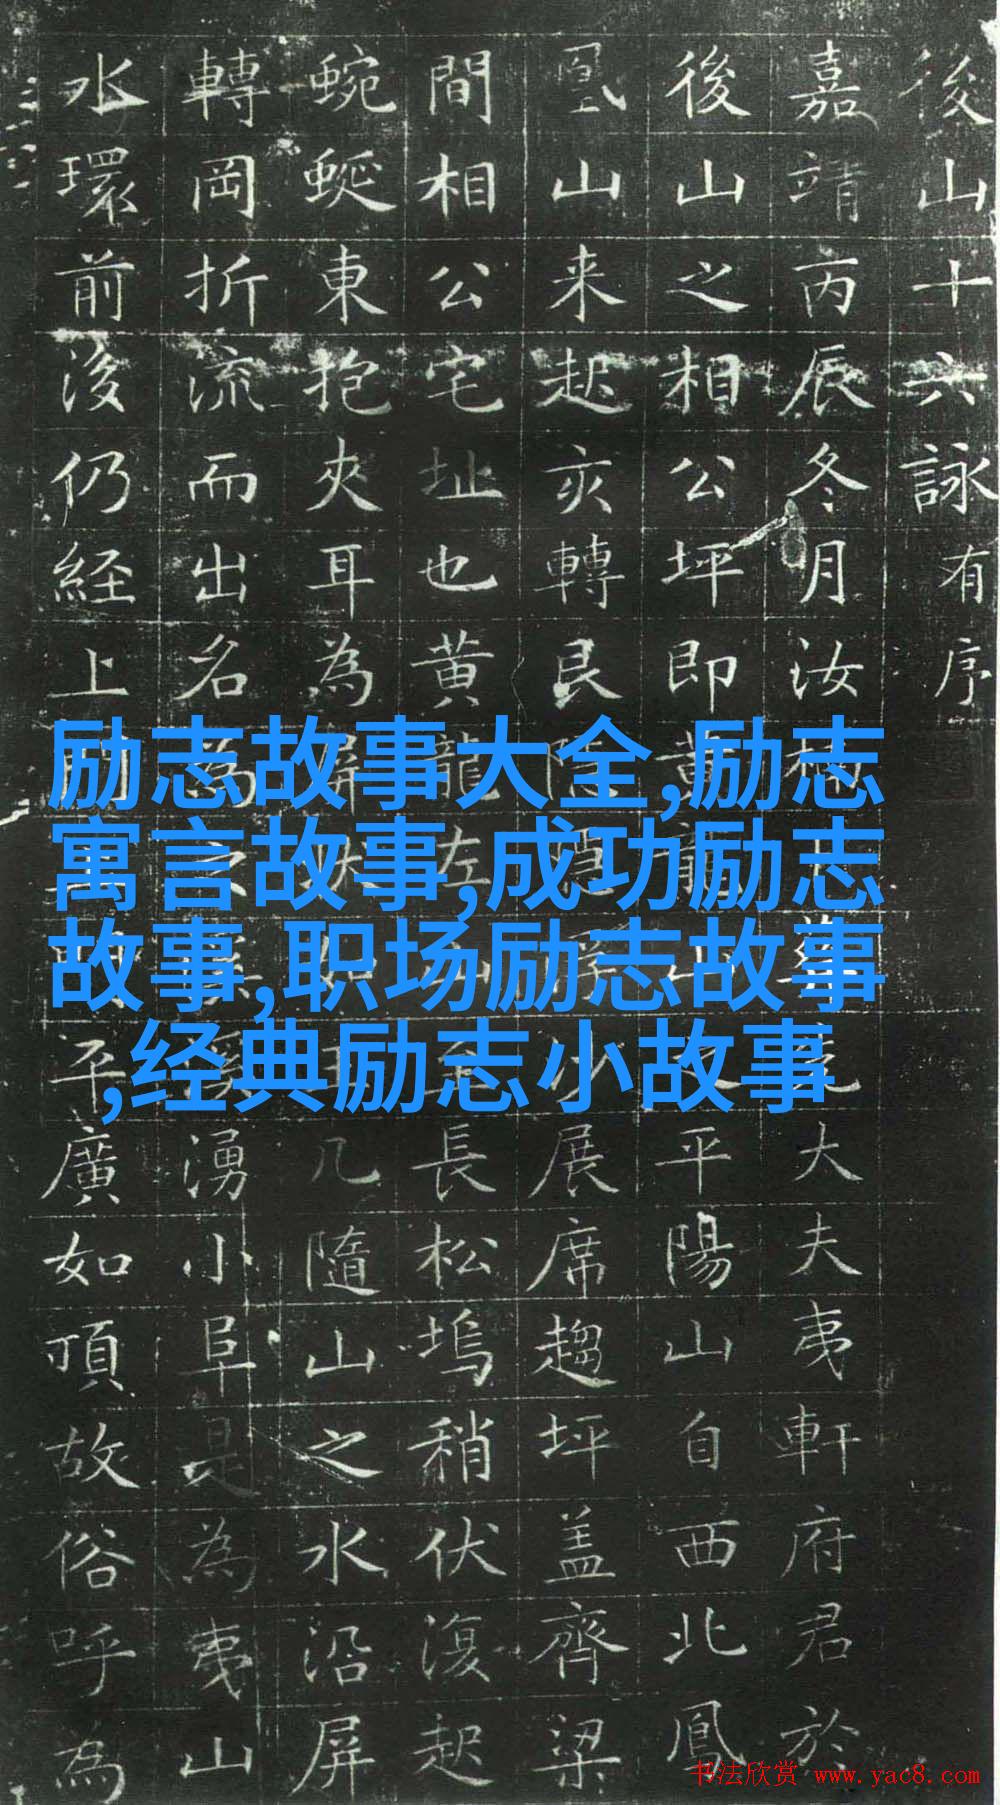 後山十六詠有序
嘉靖丙辰冬月汝
大夫夷軒府君於
後山之相公坪即
平陽山自西北鳳
凰山来起亥轉艮
展席趨坪盖齊梁
間相公宅址也黄龍左
長松塢稍伏復起
蜿蜒東抱夾耳為屏
几隨山之水沿屏
轉岡折流而出名為
湧小阜是為夷山
水環前後仍経上
平廣如頂故俗呼為
励志故事大全,励志
寓言故事,成功励志
故事,职场励志故事
,经典励志小故事
书法欣赏 www.yac8.com